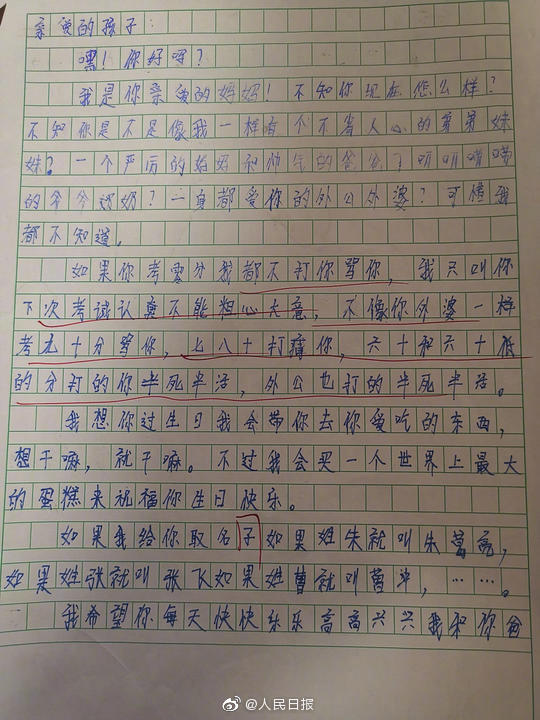 亲爱的孩子:
嘿!你好吗?
我是你亲爱的妈妈!不知你现在怎么样?
不知你是不是像我一样有个不省人心的弟弟妹
妹?一个严厉的妈妈和帅气的爸爸?叨叨唠唠
的爷爷奶奶?一直都爱你的外公外婆?可惜我
都不知道,
如果你考零分我都不打你骂你,我只叫你
下次考试认真不能粗心大意,不像你外婆一样
考九十分骂你,七八十打你,六十和六十低
的分打的你半死半活,外公也打的半死半活。
我想你过生日我会带你去你爱吃的东西,
想干嘛,就干嘛。不过我会买一个世界上最大
的蛋糕来祝福你生日快乐。
如果我给你取名子如果姓朱就叫朱葛亮,
如果姓张就叫张飞如果姓曹就叫曹,……。
我希望你每天快快乐乐高高兴兴我和你爸
@人民日报